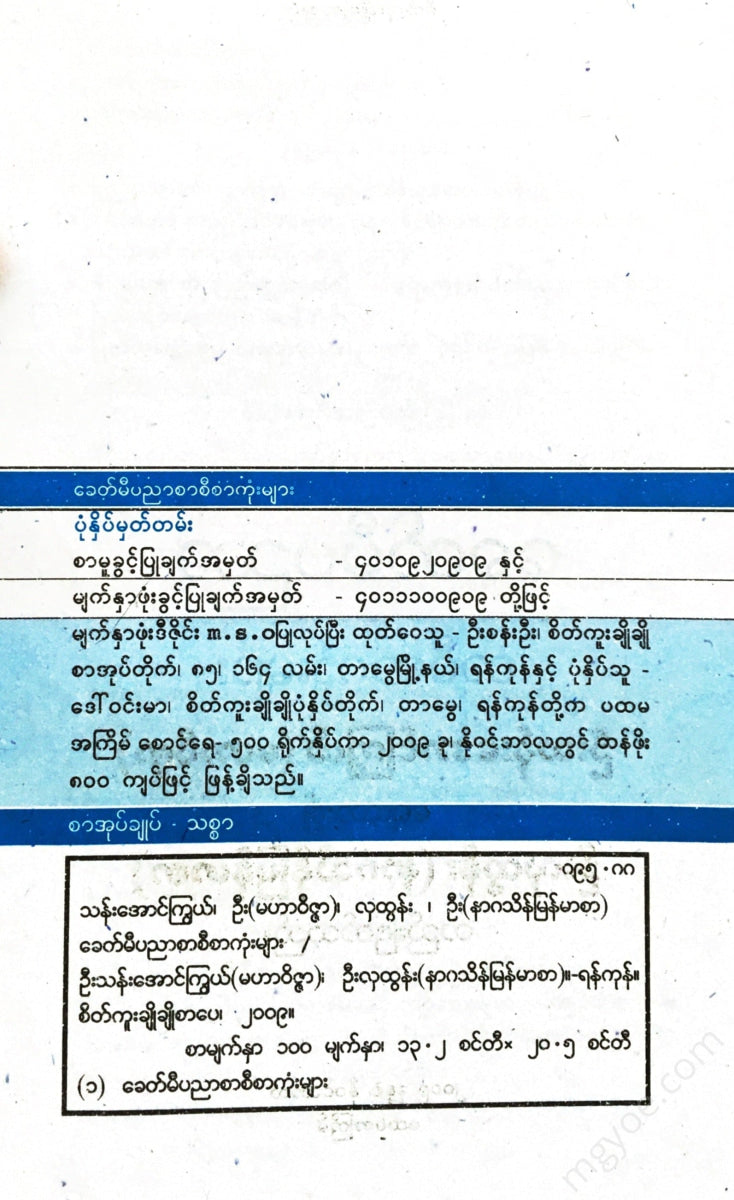 ခေတ်မီပညာစာစီစာကုံးများ
ပုံနှိပ်မှတ်တမ်း
စာမူခွင့်ပြုချက်အမှတ် - ၄၀၁၀၉၂၀၉၀၉ နှင့်
မျက်နှာဖုံးခွင့်ပြုချက်အမှတ် - ၄၀၁၁၁၀၀၉၀၉ တို့ဖြင့်
မျက်နှာဖုံးဒီဇိုင်း m.s.ဝပြုလုပ်ပြီး ထုတ်ဝေသူ - ဦးစန်းဦး၊ စိတ်ကူးချိုချို
စာအုပ်တိုက်၊ ၈၅၊ ၁၆၄ လမ်း၊ တာမွေမြို့နယ်၊ ရန်ကုန်နှင့် ပုံနှိပ်သူ -
ဒေါ်ဝင်းမာ၊ စိတ်ကူးချိုချိုပုံနှိပ်တိုက်၊ တာမွေ၊ ရန်ကုန်တို့က ပထမ
အကြိမ် စောင်ရေ- ၅၀၀ ရိုက်နှိပ်ကာ ၂၀၀၉ ခု၊ နိုဝင်ဘာလတွင် တန်ဖိုး
၈၀၀ ကျပ်ဖြင့် ဖြန့်ချိသည်။
စာအုပ်ချုပ် - သစ္စာ
၈၉၅.၈၈
သန်းအောင်ကြွယ်၊ ဦး(မဟာဝိဇ္ဇာ)၊ လှထွန်း ၊ ဦး(နာဂသိန်မြန်မာစာ)
ခေတ်မီပညာစာစီစာကုံးများ /
ဦးသန်းအောင်ကြွယ်(မဟာဝိဇ္ဇာ)၊ ဦးလှထွန်း(နာဂသိန်မြန်မာစာ)။-ရန်ကုန်။
စိတ်ကူးချိုချိုစာပေ၊ ၂၀၀၉။
စာမျက်နှာ ၁၀၀ မျက်နှာ၊ ၁၃.၂ စင်တီ× ၂၀.၅ စင်တီ
(၁) ခေတ်မီပညာစာစီစာကုံးများ
mgyoe.com